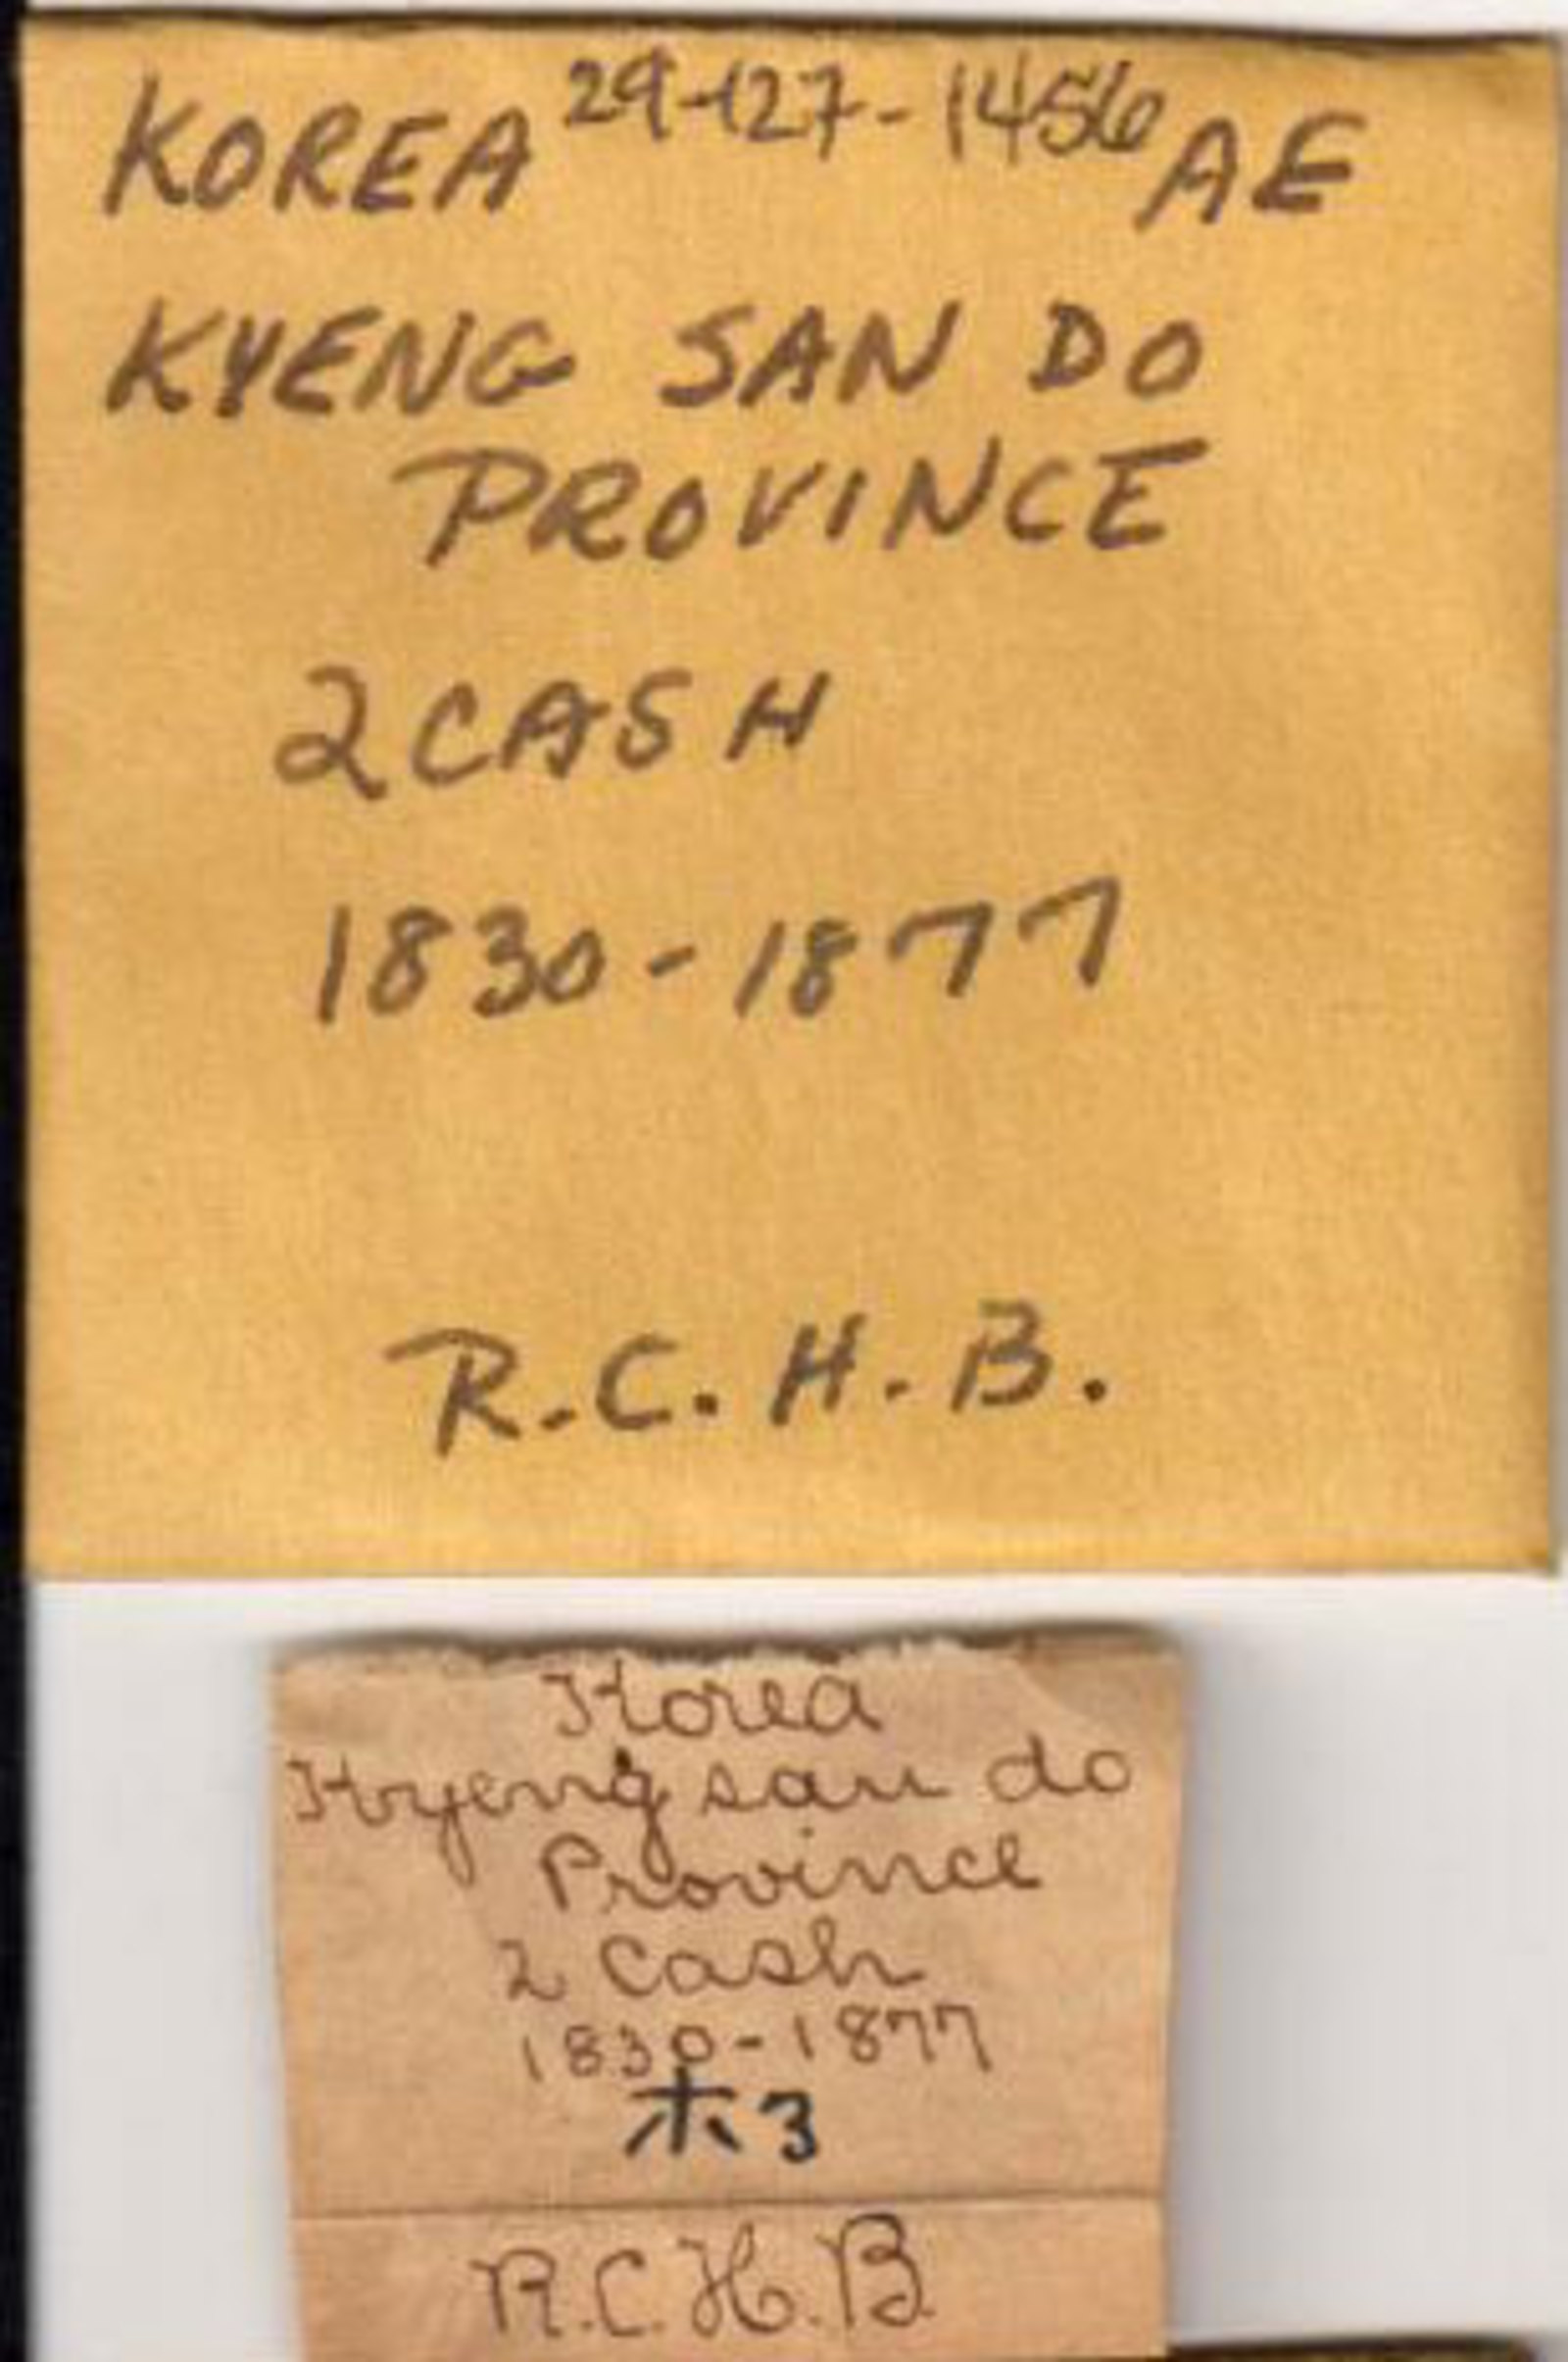 KOREA 29-127-1456 AE
KYENG SAN DO
PROVINCE
2 CASH
1830-1877
R.C.H.B.
Korea
Kyeng san do
Province
2 Cash
1830-1877
木3
R.C.H.B.